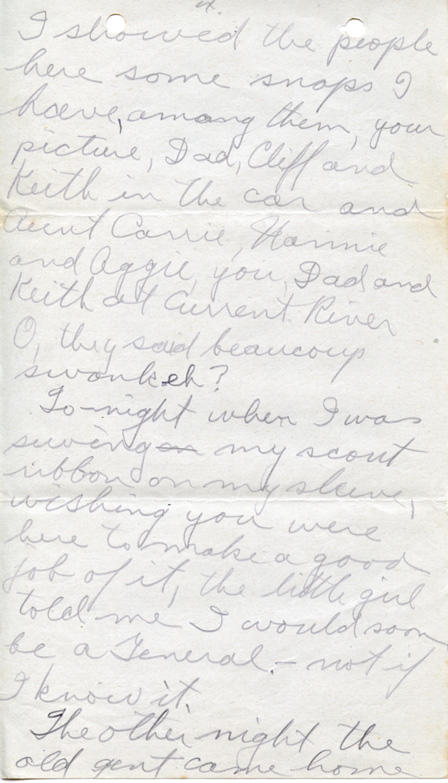 4.
I showed the people
here some snaps I
have, among them, your
picture, Dad, Cliff and
Keith in the car and
Aunt Carrie, Hannie
and Aggie, you, Dad and
Keith at Current River
O, they said beaucoup
swank eh?
To-night when I was
sewing on my scout
ribbon on my sleeve,
wishing you were
here to make a good
job of it, the little girl
told me I would soon
be a General. - not if
I know it.
The other night the
old gent came home